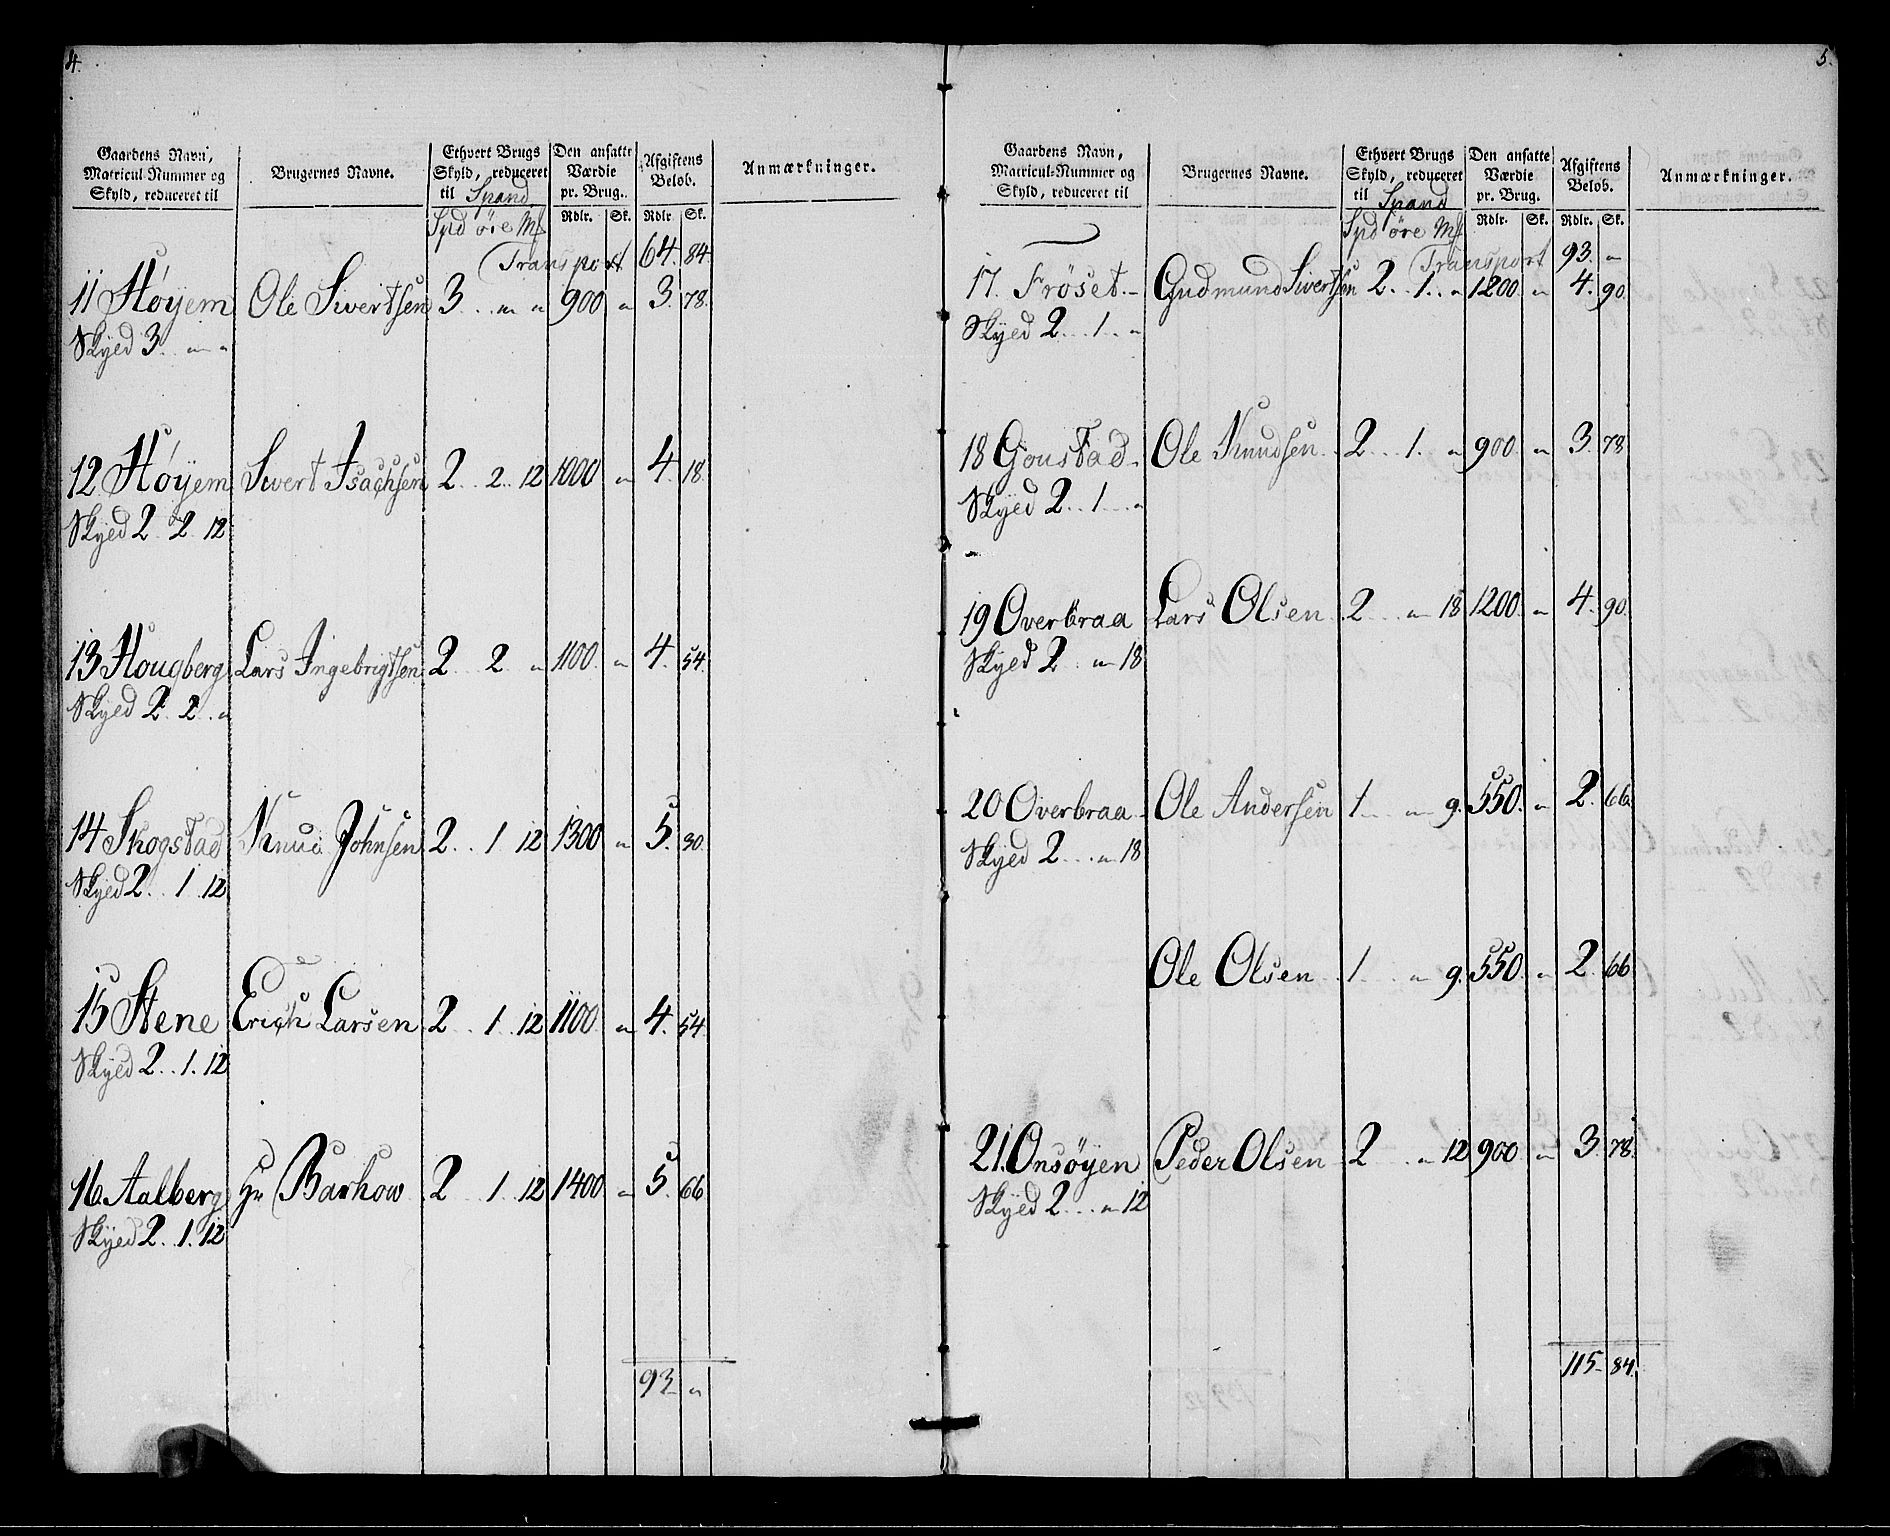 4.
Gaardens Navn,
Matricul-Nummer og
Skyld, reduceret til
Brugernes Navne.
Ethvert Brugs
Skyld, reduceret
til Spand
Spd öre Mk
Den ansatte
Værdie
pr. Brug.
Rdlr. Sk.
Afgiftens
Beløb.
Rdlr. Sk.
Anmærkninger.
Transport 64. 84.
11 Höyem Ole Sivertsen 3 .. „ „ 900 „ 3. 78.
Skyld 3. „ „
12 Höyem Sivert Isachsen 2 .. 2 .. 12 1000 „ 4. 18.
Skyld 2 .. 2. 12
13 Hougberg Lars Ingebrigtsen 2 .. 2 „ 1100. „ 4. 54.
Skyld 2. 2 .. „
14 Skogstad Knud Johnsen 2 .. 1 12 1300 „ 5. 30.
Skyld 2 .. 1 .. 12
15 Stene Erich Larsen 2 .. 1 .. 12 1100 „ 4. 54.
Skyld 2 .. 1. 12
16. Aalberg Hr Barhow 2 .. 1 .. 12 1400. „ 5. 66.
Skyld 2 .. 1. 12
93. „
5.
Gaardens Navn,
Matricul-Nummer og
Skyld, reduceret til
Brugernes Navne.
Ethvert Brugs
Skyld, reduceret
til Spand
Spd öre Mk
Den ansatte
Værdie
pr. Brug.
Rdlr. Sk.
Afgiftens
Beløb.
Rdlr. Sk.
Anmærkninger.
Transport 93. „
17. Fröset. Gudmund Sivertsen 2 .. 1 .. „ 1200. „ 4. 90.
Skyld 2 ... 1 .. „
18 Gonstad. Ole Knudsen 2 ... 1. „ 900. „ 3. 78
Skyld 2 .. 1 ... „
19 Overbraa Lars Olsen 2 ... „ 18 1200. „ 4. 90.
Skyld 2 .. „ 18
20 Overbraa Ole Andersen 1 ... „ 9. 550. „ 2. 66.
Skyld 2 ... „ 18
Ole Olsen 1 ... „ 9. 550. „ 2. 66
21. Onsöyen Peder Olsen 2 ... „ 12 900 „ 3. 78.
Skyld 2 ... „ 12
115. 84.